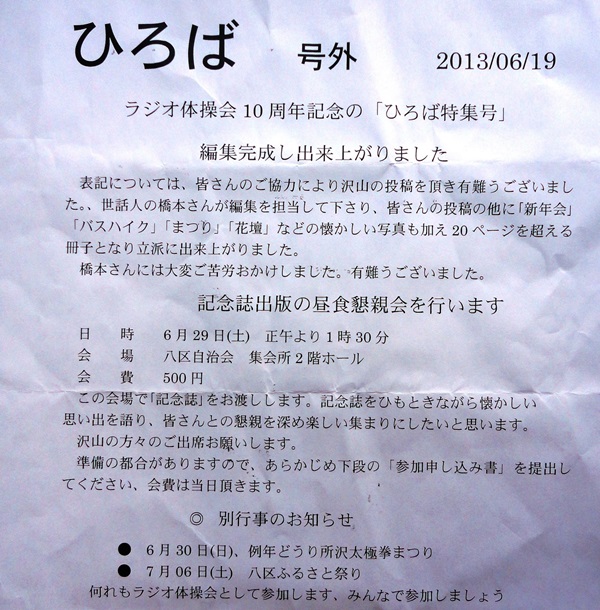 ひろば 号外 2013/06/19
ラジオ体操会10周年記念の「ひろば特集号」
編集完成し出来上がりました
表記については、皆さんのご協力により沢山の投稿を頂き有難うございまし
た。、世話人の橋本さんが編集を担当して下さり、皆さんの投稿の他に「新年会」
「バスハイク」「まつり」「花壇」などの懐かしい写真も加え20ページを超える
冊子となり立派に出来上がりました。
橋本さんには大変ご苦労おかけしました。有難うございました。
記念誌出版の昼食懇親会を行います
日 時 6月29日(土) 正午より1時30分
会 場 八区自治会 集会所2階ホール
会 費 500円
この会場で「記念誌」をお渡しします。記念誌をひもときながら懐かしい
思い出を語り、皆さんとの懇親を深め楽しい集まりにしたいと思います。
沢山の方々のご出席お願いします。
準備の都合がありますので、あらかじめ下段の「参加申し込み書」を提出し
てください、会費は当日頂きます。
◎ 別行事のお知らせ
● 6月30日(日)、例年どうり所沢太極拳まつり
● 7月06日(土) 八区ふるさと祭り
何れもラジオ体操会として参加します、みんなで参加しましょう